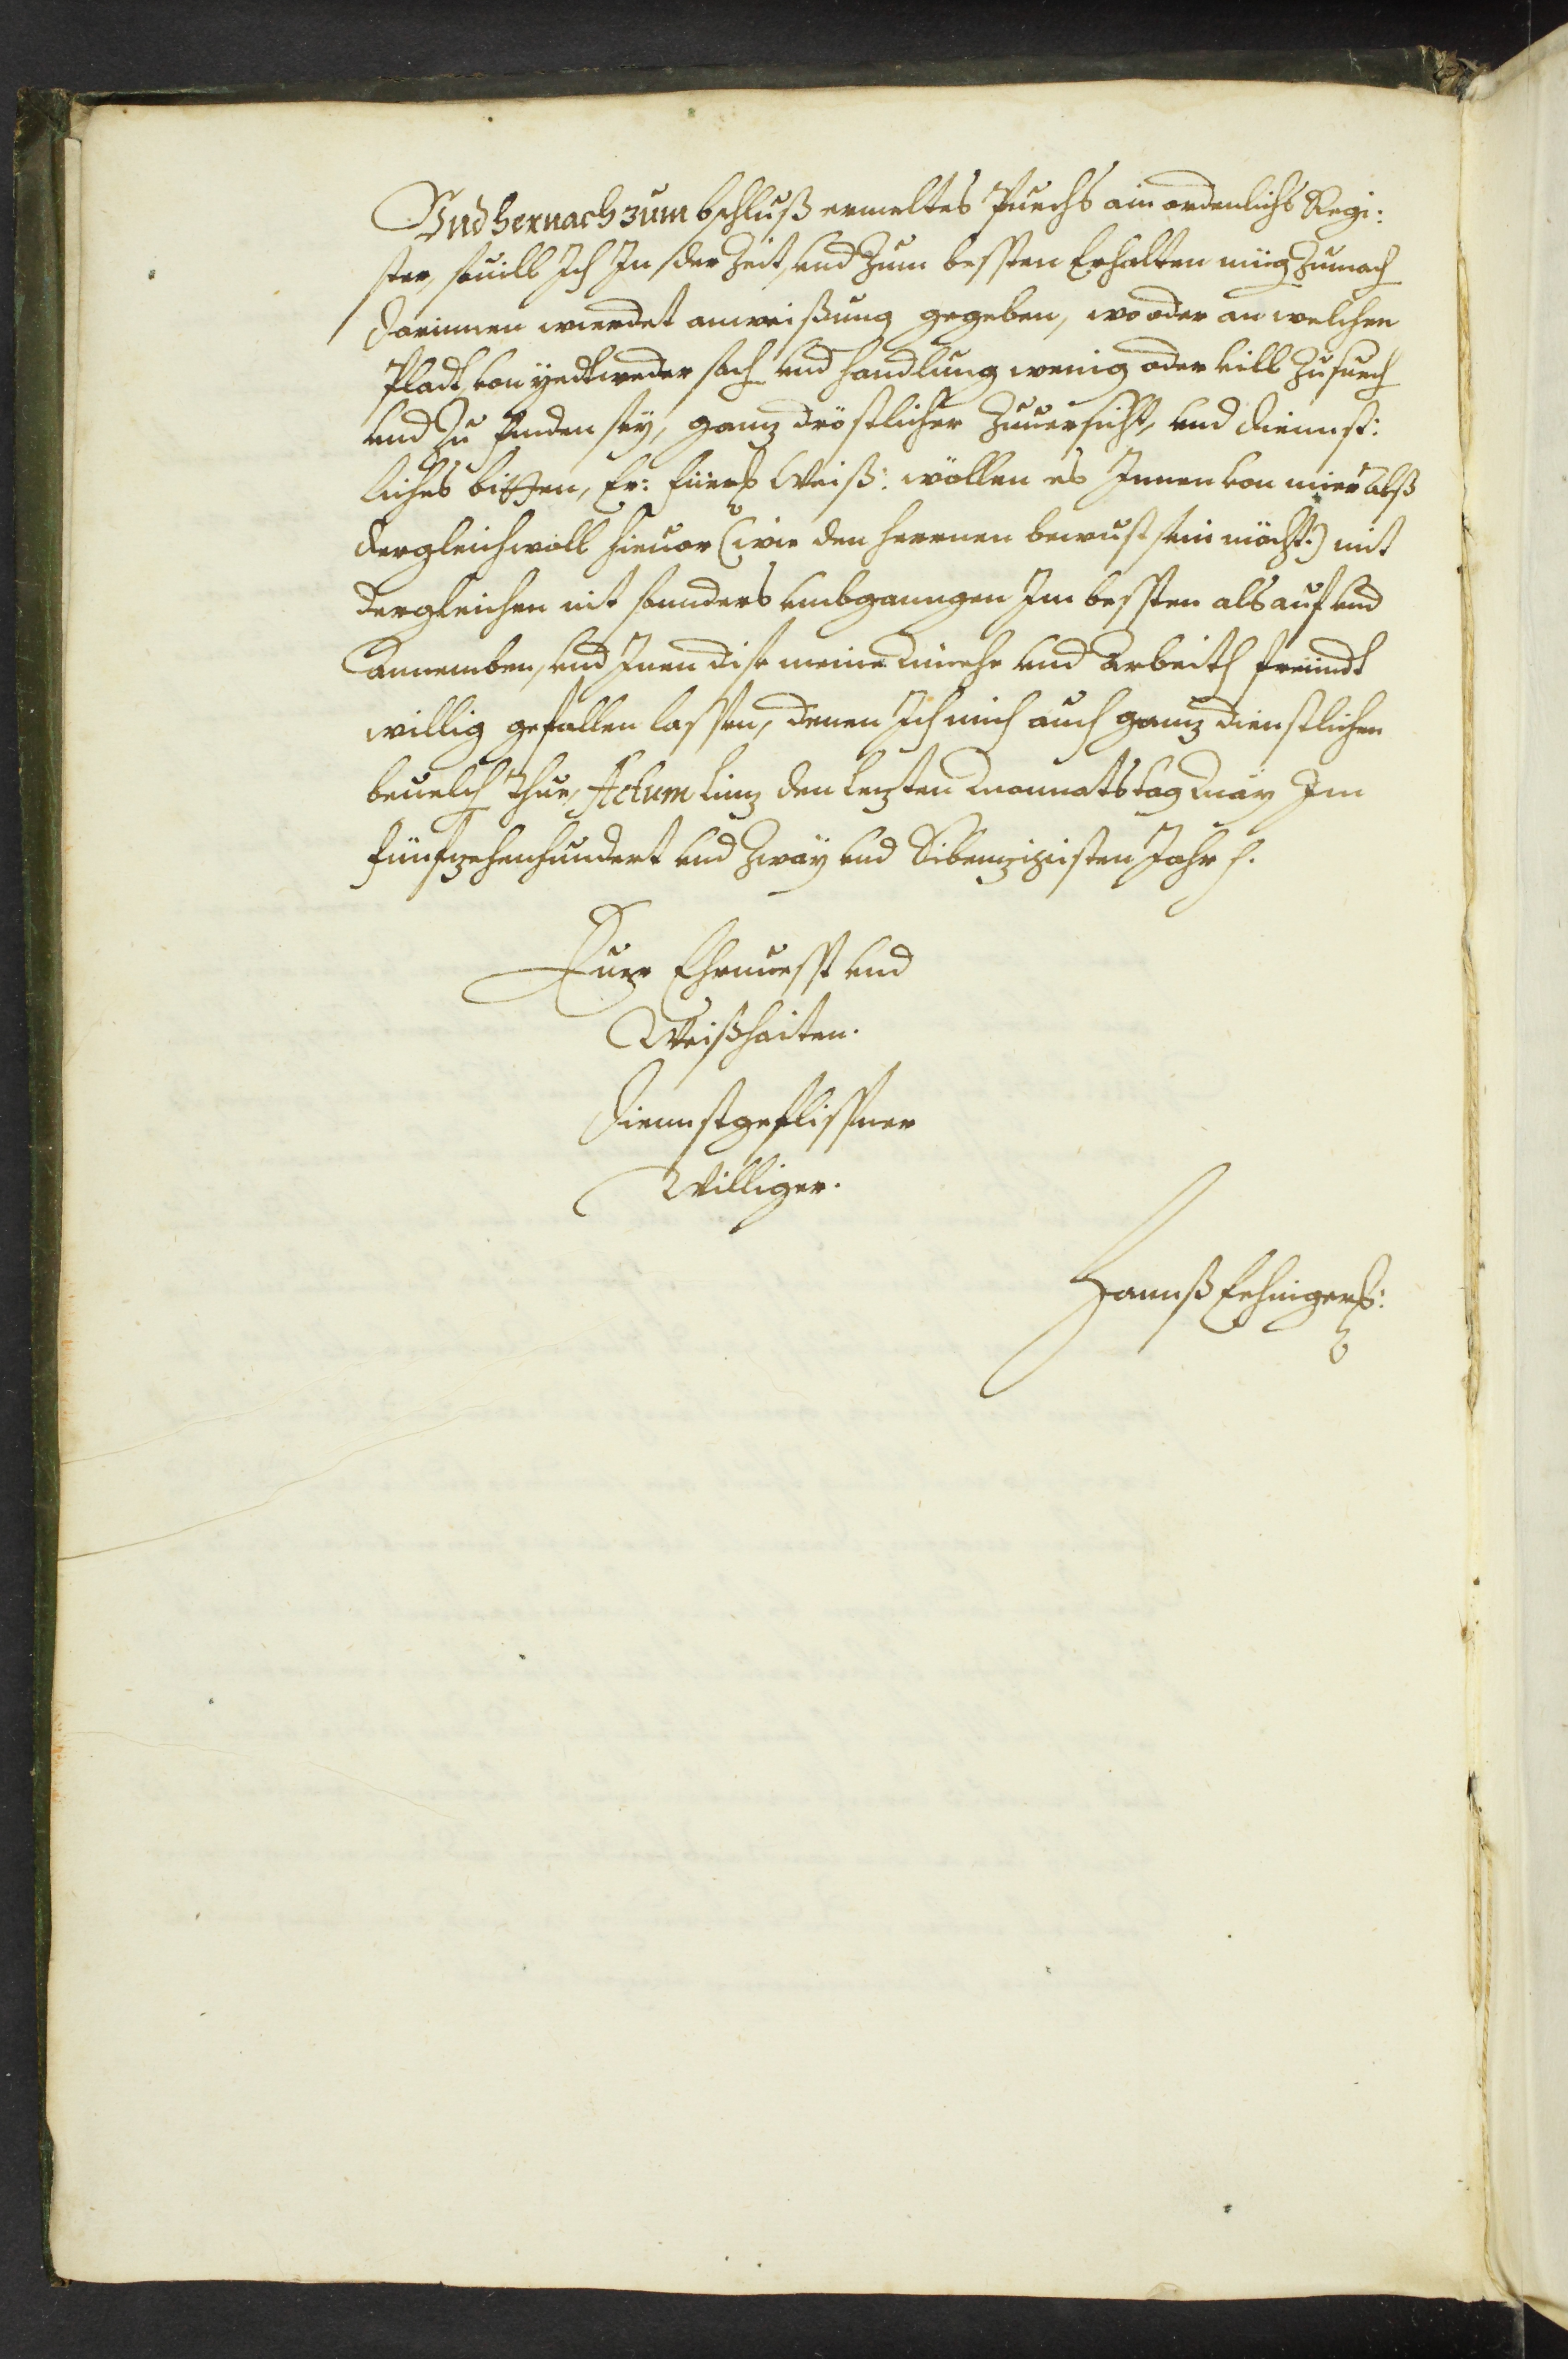 Vnd hernach zum bschluß ermeltes Puechs ain ordenlichs Regi:
ster, souill Ich In der Zeit, vnd zum bessten erhalten müg zumach
darinnen wierdet anweißung gegeben, wo oder an welchen
Pladt von yedtweder sach vnd handlung wenig oder vill zusuech
vnd zu finden sey, ganz dröstlicher Zuuersicht, vnd diennst:
liches bitten, Er: Weiß: wöllen es Innen von mier alß
der gleichwoll hieuor (wie den herrnen bewust sein möcht:) mit
dergleichen nit sonnders vmbganngen Im bessten als auf vnd
Annemben, vnd Inen dise meine Müehe vnd Arbeith freündt
willig gefallen lassen, denen Ich mich auch ganz dienstlichen
beuelch thue, Actum Linz den lezten Monnatstag May Im
fünfzehenhundert vnd zway vnd Sibenzigisten Jahr
Euer Ehrnuesst vnd
Weißhaiten.
Diennstgeflissner
Williger.
Hannß Eehinger